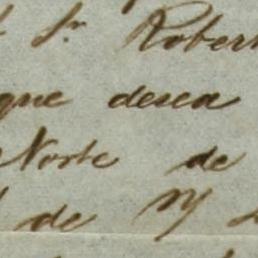 Sr Robert
que desea
Norte de
de